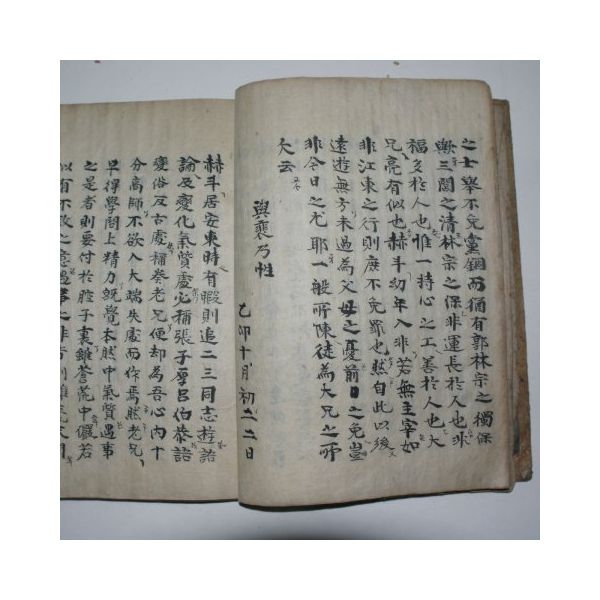 之士擧不免黨錮而猶有郭林宗之獨保
與三閭之淸林宗之保非運長於人也非
福多於人也惟一持心之工善於人也大
兄亮有似也赫斗幼年入非若無主宰如
非江東之行則庶不免罪也然自此以後
遠遊無方未過爲父母之憂前日之免豈
非今日之尤耶一般所陳徒爲大兄之所
大云
與裵乃性
乙卯十月初二二日
赫斗居安東時有暇則追二三同志遊語
論及變化氣質處必稱張子厚呂伯恭語
變俗反古處稱秦老兄便却爲吾心內十
分高師不欲入大端失處而作焉然老兄
早得學問上精力旣覺本然中氣質遇事
之是者則要付於腔子裏雖蒼荒中儼若